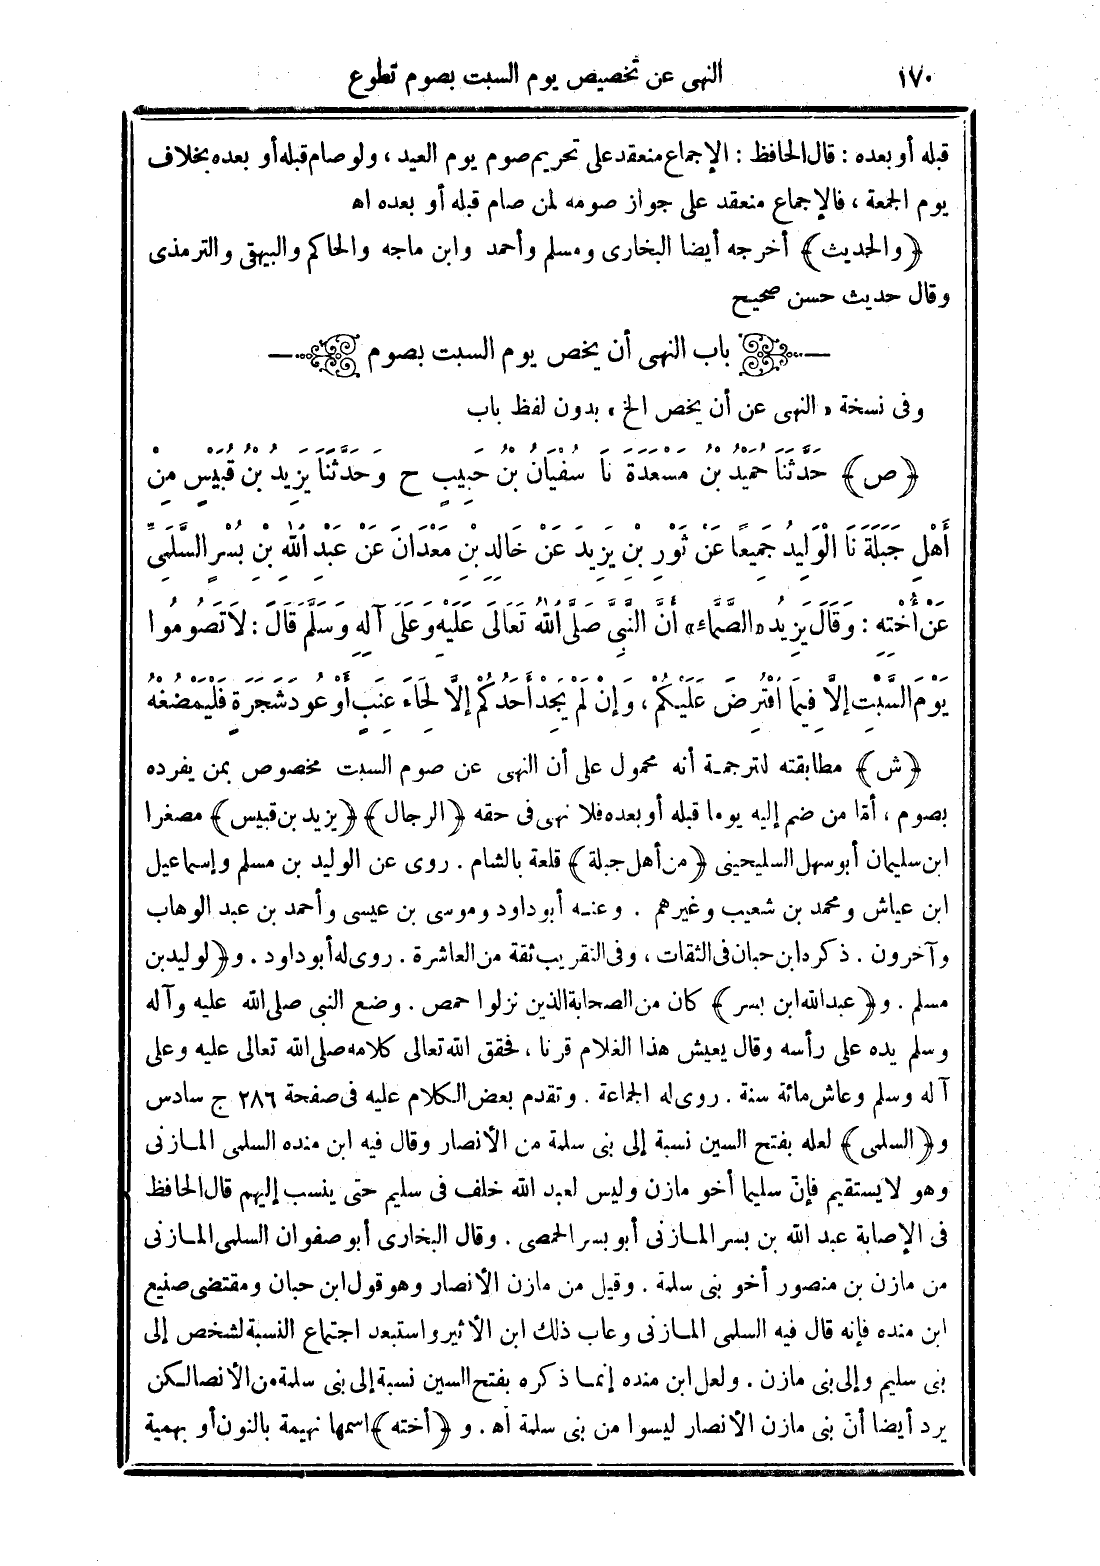 ١٧٠ النهى عن تخصيص يوم السبت بصوم تطوع
قبله أو بعده : قال الحافظ : الإجماع منعقد على تحريم صوم يوم العيد ، ولو صام قبله أو بعده بخلاف
يوم الجمعة ، فالإجماع منعقد على جواز صومه لمن صام قبله أو بعده اه
﴿والحديث﴾ أخرجه أيضا البخارى ومسلم وأحمد وابن ماجه والحاكم والبيهقى والترمذى
وقال حديث حسن صحيح
باب النهى أن يخص يوم السبت بصوم
وفى نسخة « النهى عن أن يخص الخ » بدون لفظ باب
﴿ص﴾ حَدَّثَنَا حُمَيْدُ بْنُ مَسْعَدَةَ نَا سُفْيَانُ بْنُ حَبِيبٍ ح وَحَدَّثَنَا يَزِيدُ بْنُ قُبَيْسٍ مِنْ
أَهْلِ جَبَلَةَ نَا الْوَلِيدُ جَمِيعًا عَنْ ثَوْرِ بْنِ يَزِيدَ عَنْ خَالِدِ بْنِ مَعْدَانَ عَنْ عَبْدِ اللهِ بْنِ بُسْرٍ السَّلَمِىِّ
عَنْ أُخْتِهِ : وَقَالَ يَزِيدُ «الصَّمَّاءِ» أَنَّ النَّبِىَّ صَلَّى اللهُ تَعَالَى عَلَيْهِ وَعَلَى آلِهِ وَسَلَّمَ قَالَ : لاَ تَصُومُوا
يَوْمَ السَّبْتِ إِلاَّ فِيمَا افْتُرِضَ عَلَيْكُمْ ، وَإِنْ لَمْ يَجِدْ أَحَدُكُمْ إِلاَّ لِحَاءَ عِنَبٍ أَوْ عُودَ شَجَرَةٍ فَلْيَمْضُغْهُ
﴿ش﴾ مطابقته للترجمة أنه محمول على أن النهى عن صوم السبت مخصوص بمن يفرده
بصوم ، أمّا من ضم إليه يوما قبله أو بعده فلا نهى فى حقه ﴿الرجال﴾ ﴿يزيد بن قبيس﴾ مصغرا
ابن سليمان أبو سهل السليحينى ﴿من أهل جبلة﴾ قلعة بالشام . روى عن الوليد بن مسلم وإسماعيل
ابن عياش ومحمد بن شعيب وغيرهم . وعنه أبو داود وموسى بن عيسى وأحمد بن عبد الوهاب
وآخرون . ذكره ابن حبان فى الثقات ، وفى التقريب ثقة من العاشرة . روى له أبو داود . و﴿لوليد بن
مسلم . و﴿عبد الله ابن بسر﴾ كان من الصحابة الذين نزلوا حمص . وضع النبى صلى الله عليه وآله
وسلم يده على رأسه وقال يعيش هذا الغلام قرنا ، فحقق الله تعالى كلامه صلى الله تعالى عليه وعلى
آله وسلم وعاش مائة سنة . روى له الجماعة . وتقدم بعض الكلام عليه فى صفحة ٢٨٦ ج سادس
و﴿السلمى﴾ لعله بفتح السين نسبة إلى بنى سلمة من الأنصار وقال فيه ابن منده السلمى المازنى
وهو لا يستقيم فإنّ سليما أخو مازن وليس لعبد الله خلف فى سليم حتى ينسب إليهم قال الحافظ
فى الإصابة عبد الله بن بسر المازنى أبو بسر الحمصى . وقال البخارى أبو صفوان السلمى المازنى
من مازن بن منصور أخو بنى سلمة . وقيل من مازن الأنصار وهو قول ابن حبان ومقتضى صنيع
ابن منده فإنه قال فيه السلمى المازنى وعاب ذلك ابن الأثير واستبعد اجتماع النسبة لشخص إلى
بنى سليم وإلى بنى مازن . ولعل ابن منده إنما ذكره بفتح السين نسبة إلى بنى سلمة من الأنصار لكن
يرد أيضا أنّ بنى مازن الأنصار ليسوا من بنى سلمة اه . و ﴿أخته﴾ اسمها نهيمة بالنون أو بهمية